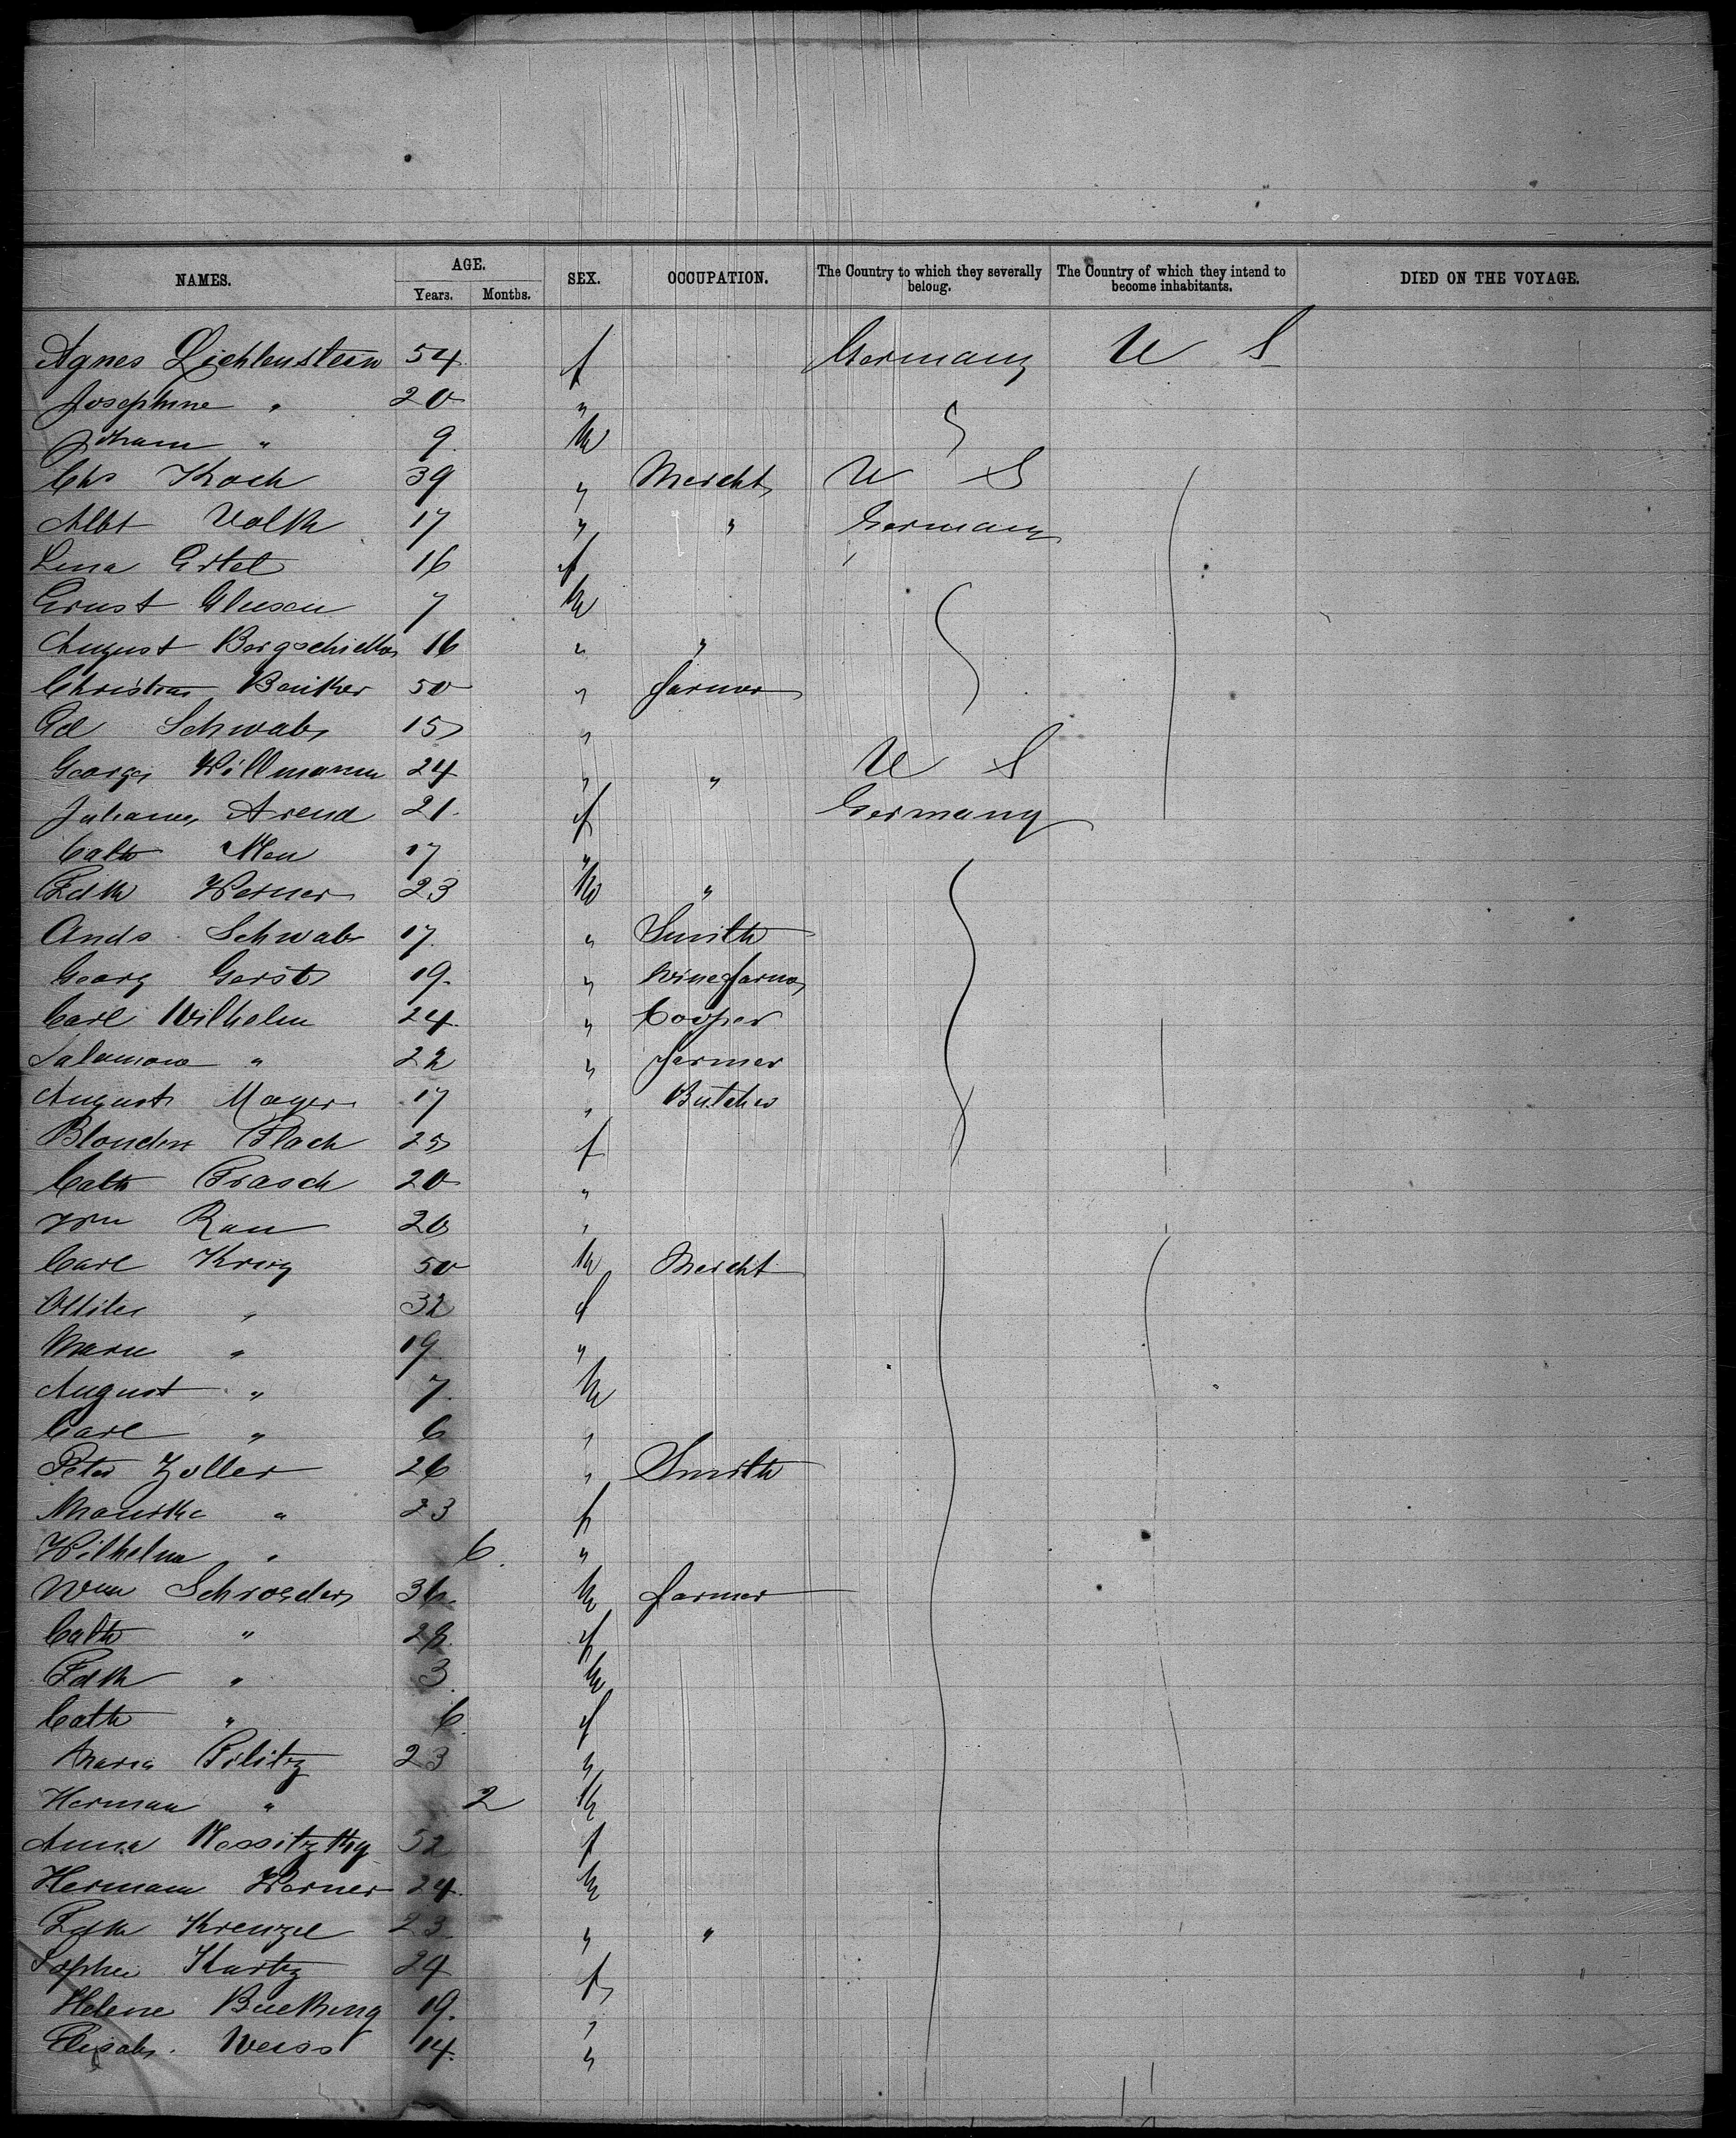 NAMES. AGE. SEX. OCCUPATION. The Country to which they severally belong. The Country of which they intend to become inhabitants. DIED ON THE VOYAGE.
Years. Months.
Agnes Lichtenstein 54 f Germany U S
Josephine " 20 "
Johann " 9 M
Chs Koch 39 " Mercht U S
Albt Volk 17 " " Germany
Lena Ertel 16 f
Ernst 7 M
August 16 " "
Christian Benker 50 " farmer
Ed Schwab 15 "
George Willmann 24 " " U S
Arend 21 f Germany
Cath 17 "
Fdk Werner 23 M "
Ands Schwab 17 " Smith
Georg Gerst 19 " Winefarmer
Carl Wilhelm 24 " Cooper
Salamon " 22 " farmer
August Mayer 17 " Butcher
Blondin Flach 25 f
Cath Frasch 20 "
Wm Rau 20 "
Carl Krug 50 M Mercht
Ottilie " 32 f
Marie " 19 "
August " 7 M
Carl " 6 "
Peter Zoller 26 " Smith
" 23 f
Wilhelm " 6 "
Wm Schroeder 36 M farmer
Cath " 28 f
Fdk " 3 M
Cath " 6 f
Maria 23 "
Herman " 2 M
Anna 52 f
Hermann Werner 24 M
Fdk Krenzel 23 " "
Sophie Kurtz 24 f
Helene Bueking 19 "
Elisab. Weiss 14 "